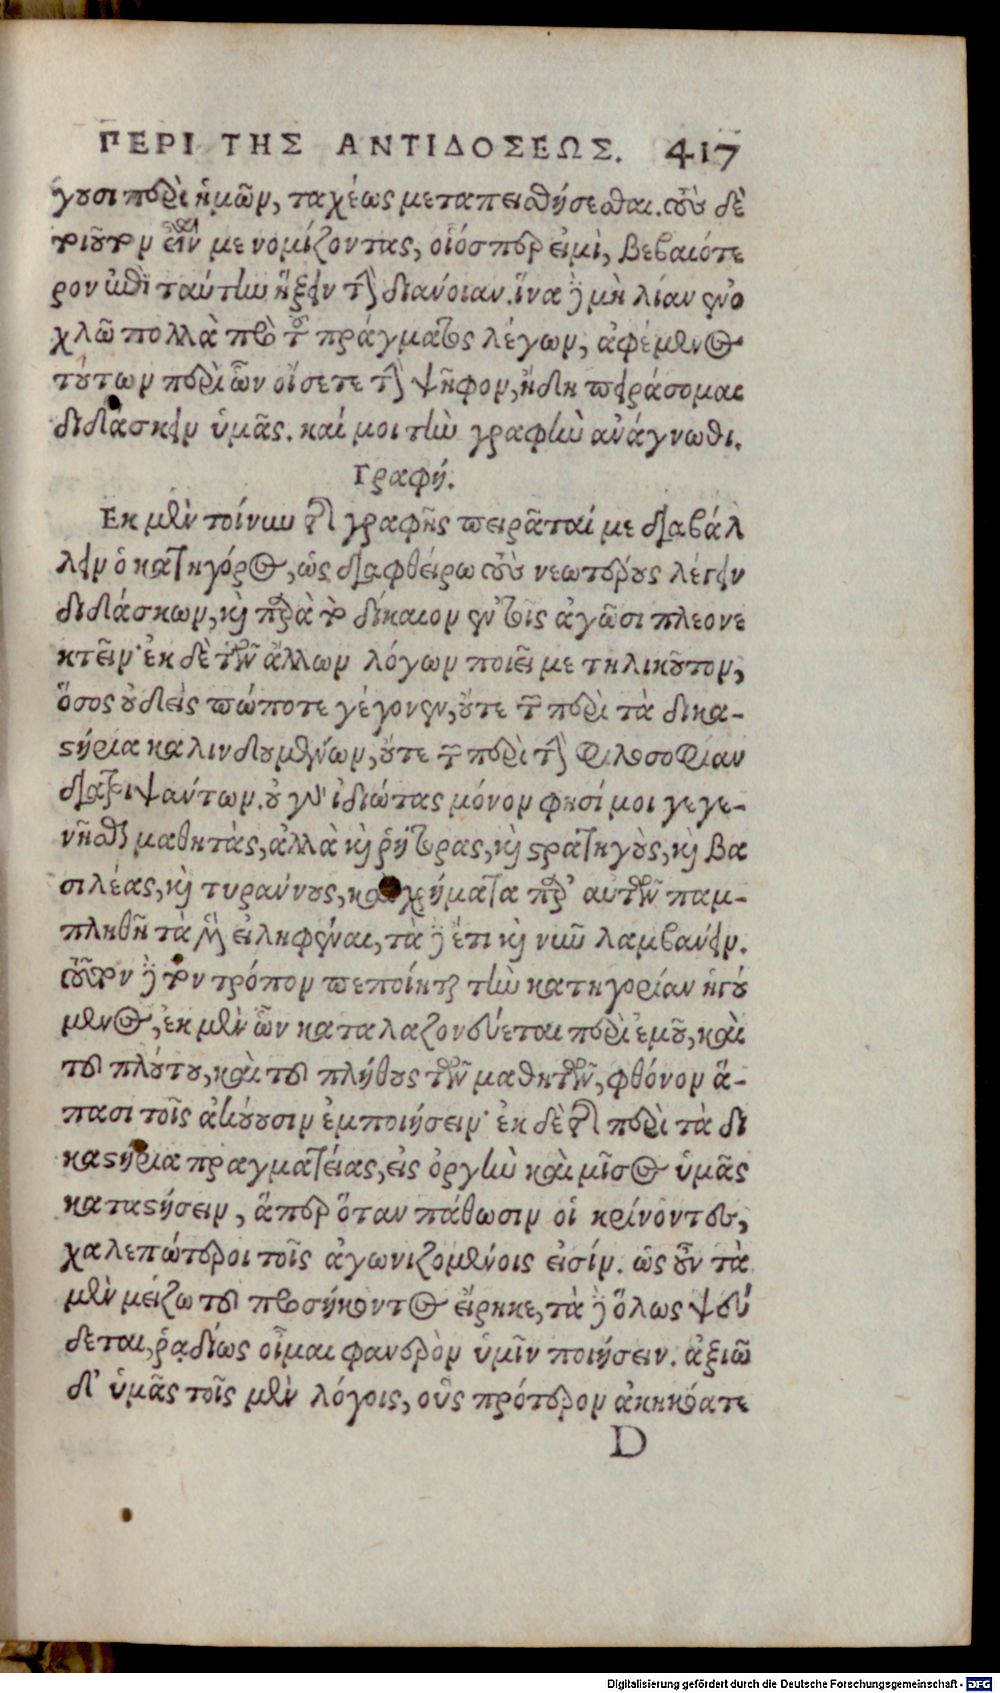 ΠΕΡΙ ΤΗΣ ΑΝΤΙΔΟΣΕΩΣ. 417
γουσι περὶ ἡμῶν, ταχέως μεταπεισθήσεσθαι. τοὺς δὲ
τοιοῦτον εἶναι με νομίζοντας, οἷόσπερ εἰμὶ, βεβαιότε
ρον ἔτι ταύτην ἥξειν τὴν διάνοιαν. ἵνα δὲ μὴ λίαν ἐνο
χλῶ πολλὰ πρὸ τοῦ πράγματος λέγων, ἀφέμενος
τούτων περὶ ὧν οἴσετε τὴν ψῆφον, ἤδη πειράσομαι
διδάσκειν ὑμᾶς. καί μοι τὴν γραφὴν ἀνάγνωθι.
Γραφή.
Εκ μὲν τοίνυν τῆς γραφῆς πειρᾶταί με διαβάλ
λειν ὁ κατηγόρος, ὡς διαφθείρω τοὺς νεωτέρους λέγειν
διδάσκων, καὶ παρὰ τὸ δίκαιον ἐν τοῖς ἀγῶσι πλεονε
κτεῖν· ἐκ δὲ τῶν ἄλλων λόγων ποιεῖ με τηλικοῦτον,
ὅσος οὐδεὶς πώποτε γέγονεν, οὔτε τῶν περὶ τὰ δικα-
στήρια καλινδουμένων, οὔτε τῶν περὶ τὴν φιλοσοφίαν
διατριψάντων. οὐ γὰρ ἰδιώτας μόνον φησί μοι γεγε-
νῆσθαι μαθητὰς, ἀλλὰ καὶ ῥήτορας, καὶ στρατηγοὺς, καὶ βα
σιλέας, καὶ τυράννους, καὶ χρήματα παρ' αὐτῶν παμ-
πληθῆ τὰ μὲν εἰληφέναι, τὰ δὲ ἔτι καὶ νῦν λαμβάνειν.
τοῦτον δὲ τὸν τρόπον πεποίηται τὴν κατηγορίαν ἡγού
μενος, ἐκ μὲν ὧν καταλαζονεύεται περὶ ἐμοῦ, καὶ
τοῦ πλούτου, καὶ τοῦ πλήθους τῶν μαθητῶν, φθόνον ἅ-
πασι τοῖς ἀκούουσιν ἐμποιήσειν· ἐκ δὲ τῆς περὶ τὰ δι
καστήρια πραγματείας, εἰς ὀργὴν καὶ μῖσος ὑμᾶς
καταστήσειν, ἅπερ ὅταν πάθωσιν οἱ κρίνοντες,
χαλεπώτεροι τοῖς ἀγωνιζομένοις εἰσίν. ὡς οὖν τὰ
μὲν μείζω τοῦ προσήκοντος εἴρηκε, τὰ δὲ ὅλως ψεύ
δεται, ῥᾳδίως οἶμαι φανερὸν ὑμῖν ποιήσειν. ἀξιῶ
δ' ὑμᾶς τοῖς μὲν λόγοις, οὓς πρότερον ἀκηκόατε
D
Digitalisierung gefördert durch die Deutsche Forschungsgemeinschaft - DFG